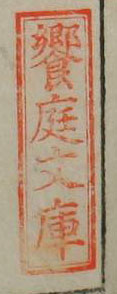 饗庭文庫